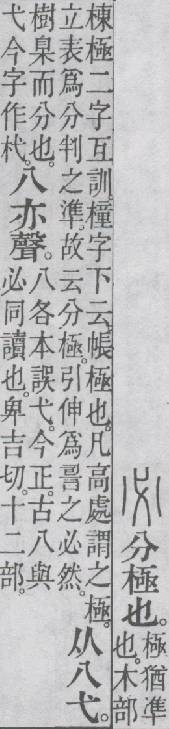 必 分極也。極猶準也。木部
棟極二字互訓。橦字下云。帳極也。凡高處謂之極。立表爲分判之準。故云分極。引伸爲䛐之必然。从八弋。
樹臬而分也。弋今字作杙。八亦聲。八各本誤弋。今正。古八與必同讀也。卑吉切。十二部。